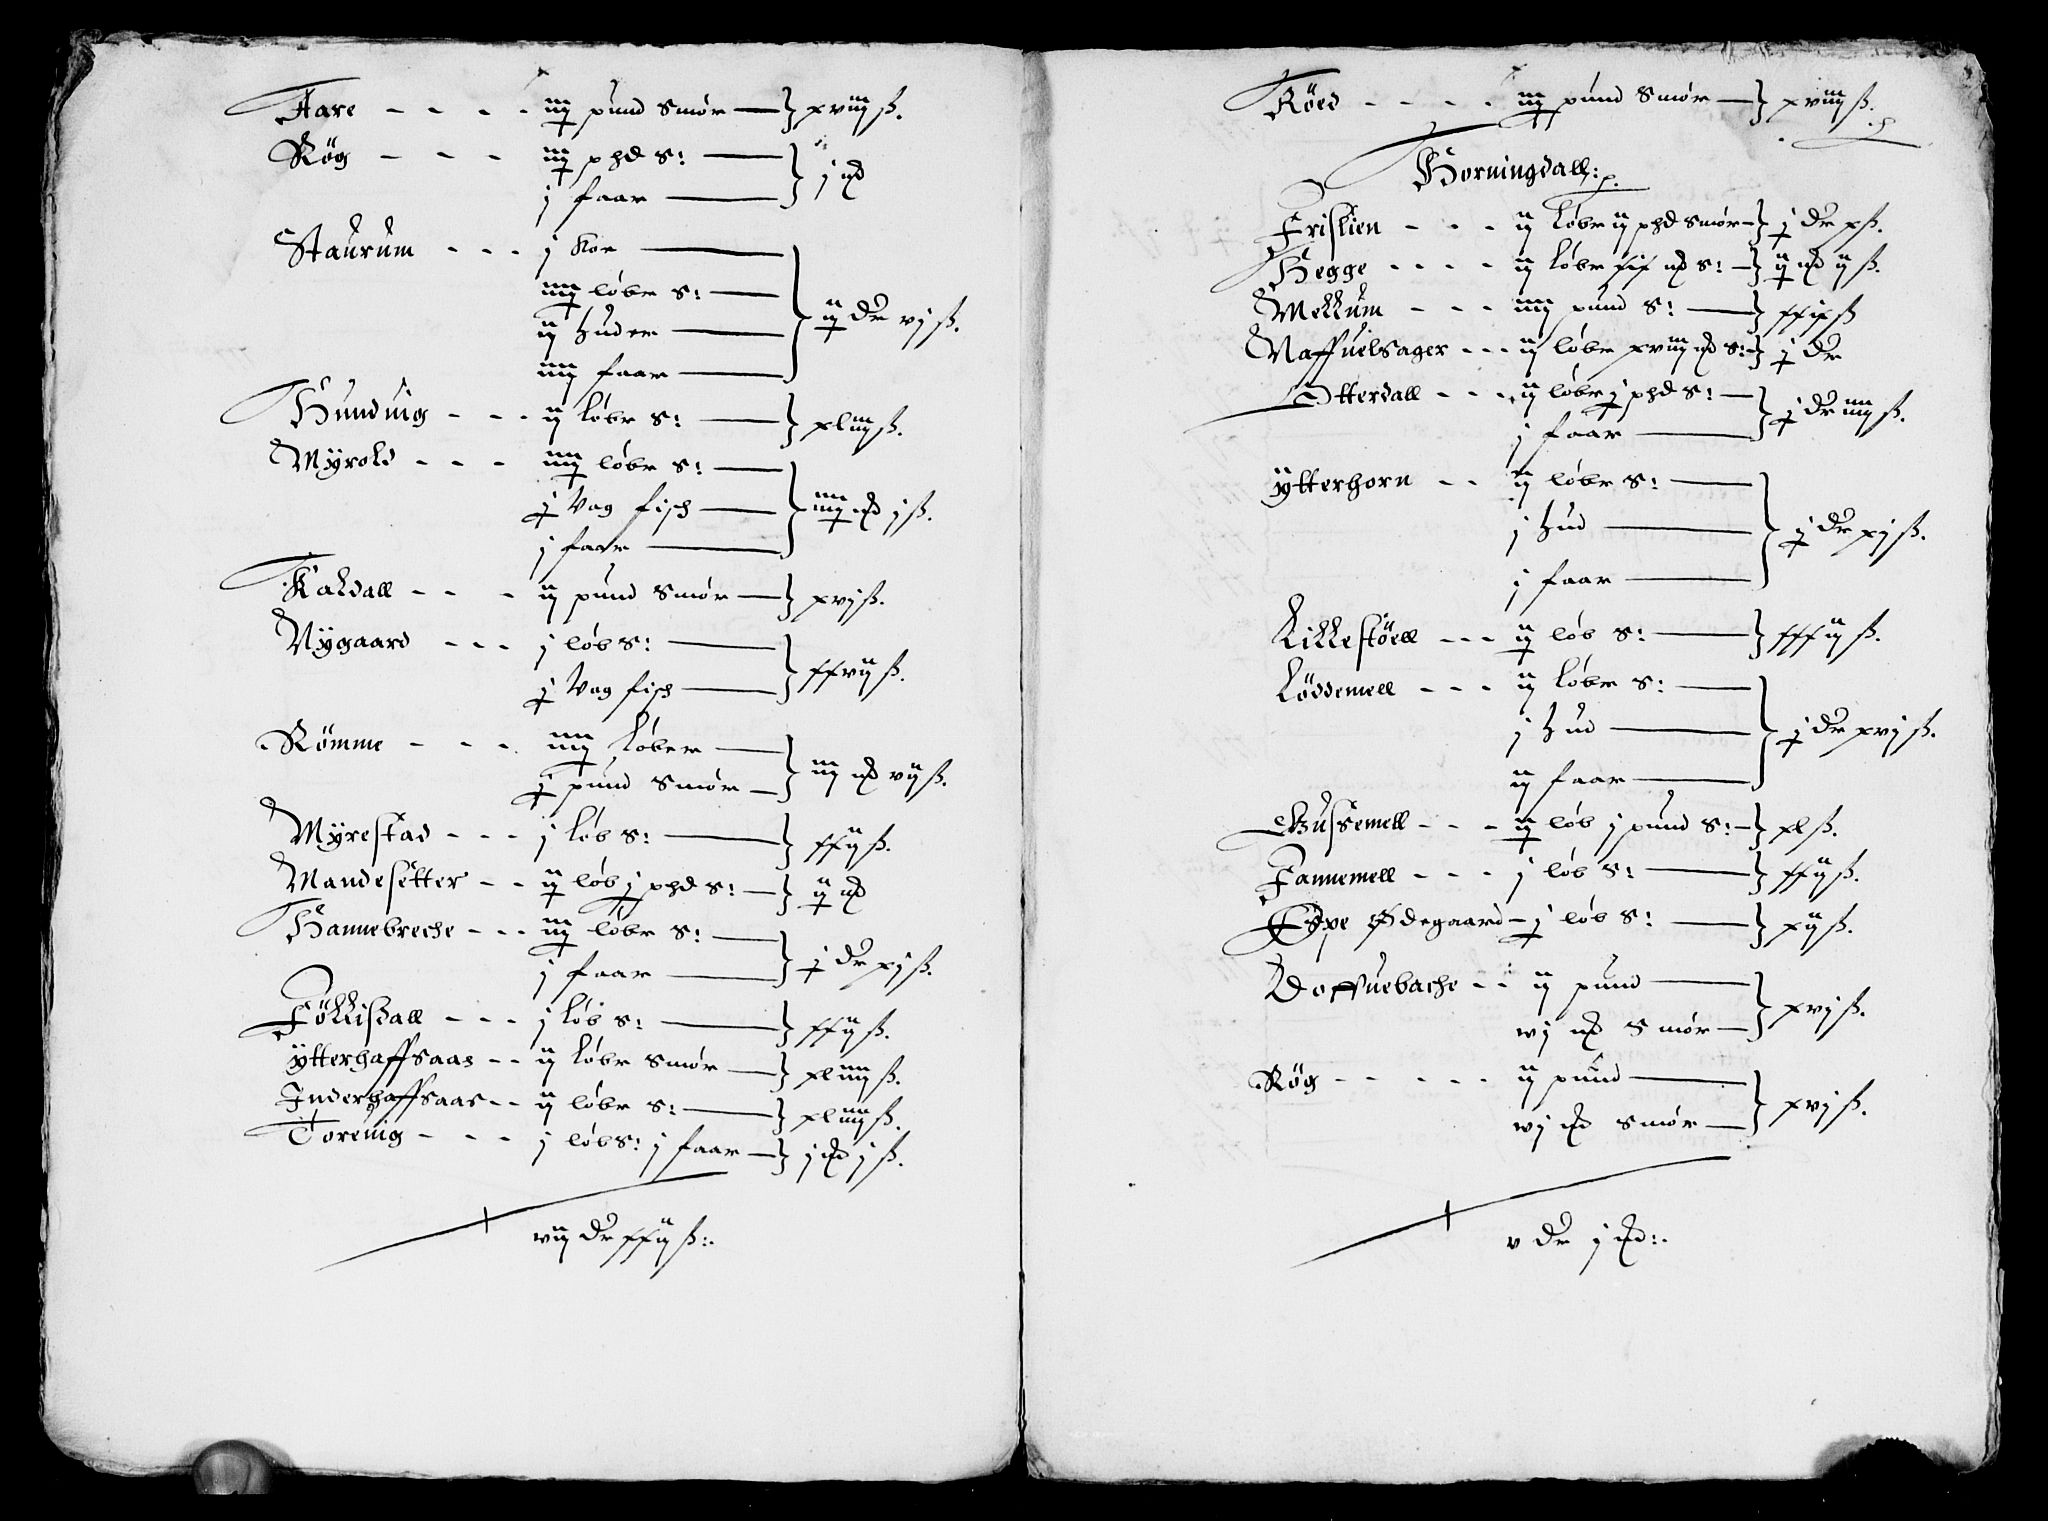 Aare - - - - iij pund Smør — } xviij ß.
Røg - - - iij phd S: —
j faar — } j ɱd
Staurum - - - j Koe —
iiij løbe S: —
ij huder —
iiij faar — } ij dr vj ß.
Hunduig - - - ij løbe S: — } xliiij ß.
Myrold - - - iiij løbe S: —
j Vog fisch —
j faar — } iiij ɱd j ß.
Kaldall - - - ij pund Smør — } xvj ß.
Nygaard - - - j løb S: —
j Vog fisch — } xxvij ß.
Rømme - - - iiij Løber —
j pund Smør — } iij ɱd vij ß.
Myrestad - - - j løb S: — } xxij ß.
Mandesetter - - ij løb j phd S: — } ij ɱd
Hannebreche - - - iij løbe S: —
j faar — } j dr xj ß.
Føllisdall - - - j løb S: — } xxij ß.
Ytterhaffsaas - - ij løbe Smør — } xliiij ß.
Inderhaffsaas - - ij løbe S: — } xliiij ß.
Toreuig - - - j løb S: j faar — } j ɱd j ß.
viij dr xxij ß:
Røed - - - - iij pund Smør — } xviij ß.
Horningdall:
Frislien - - - ij løbe ij phd Smør — } j dr x ß.
Hegge - - - - ij løbe xix ɱd S: — } ij ɱd ij ß.
Mellum - - - iiij pund S: — } xxix ß
Naffuelsager - - - ij løbe xviij ɱd S: — } j dr
Otterdall - - - ij løbe j phd S: —
j faar — } j dr iiij ß.
Ytterhorn - - ij løbe S: —
j hud —
j faar — } j dr xj ß.
Lillestøell - - - ij løb S: — } xxxij ß.
Løddemell - - - ij løbe S: —
j hud —
ij faar — } j dr xvj ß.
Gussemell - - - ij løb j pund S: — } xl ß.
Fannemell - - - j løb S: — } xxij ß.
Eype Ødegaard - j løb S: — } xij ß.
Doffuebache - - ij pund —
vj ɱd Smør — } xvj ß.
Røg - - - - - ij pund —
vj ɱd Smør — } xvj ß.
v dr j ɱd: